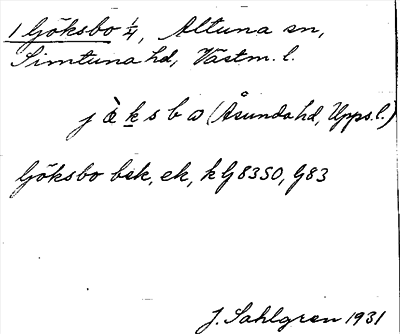 1 Göksbo 1/4, Altuna sn,
Simtuna hd, Västm. l.
(Åsunda hd, Upps. l.)
Göksbo bsk, ek, k G 8350, G 83
J. Sahlgren 1931